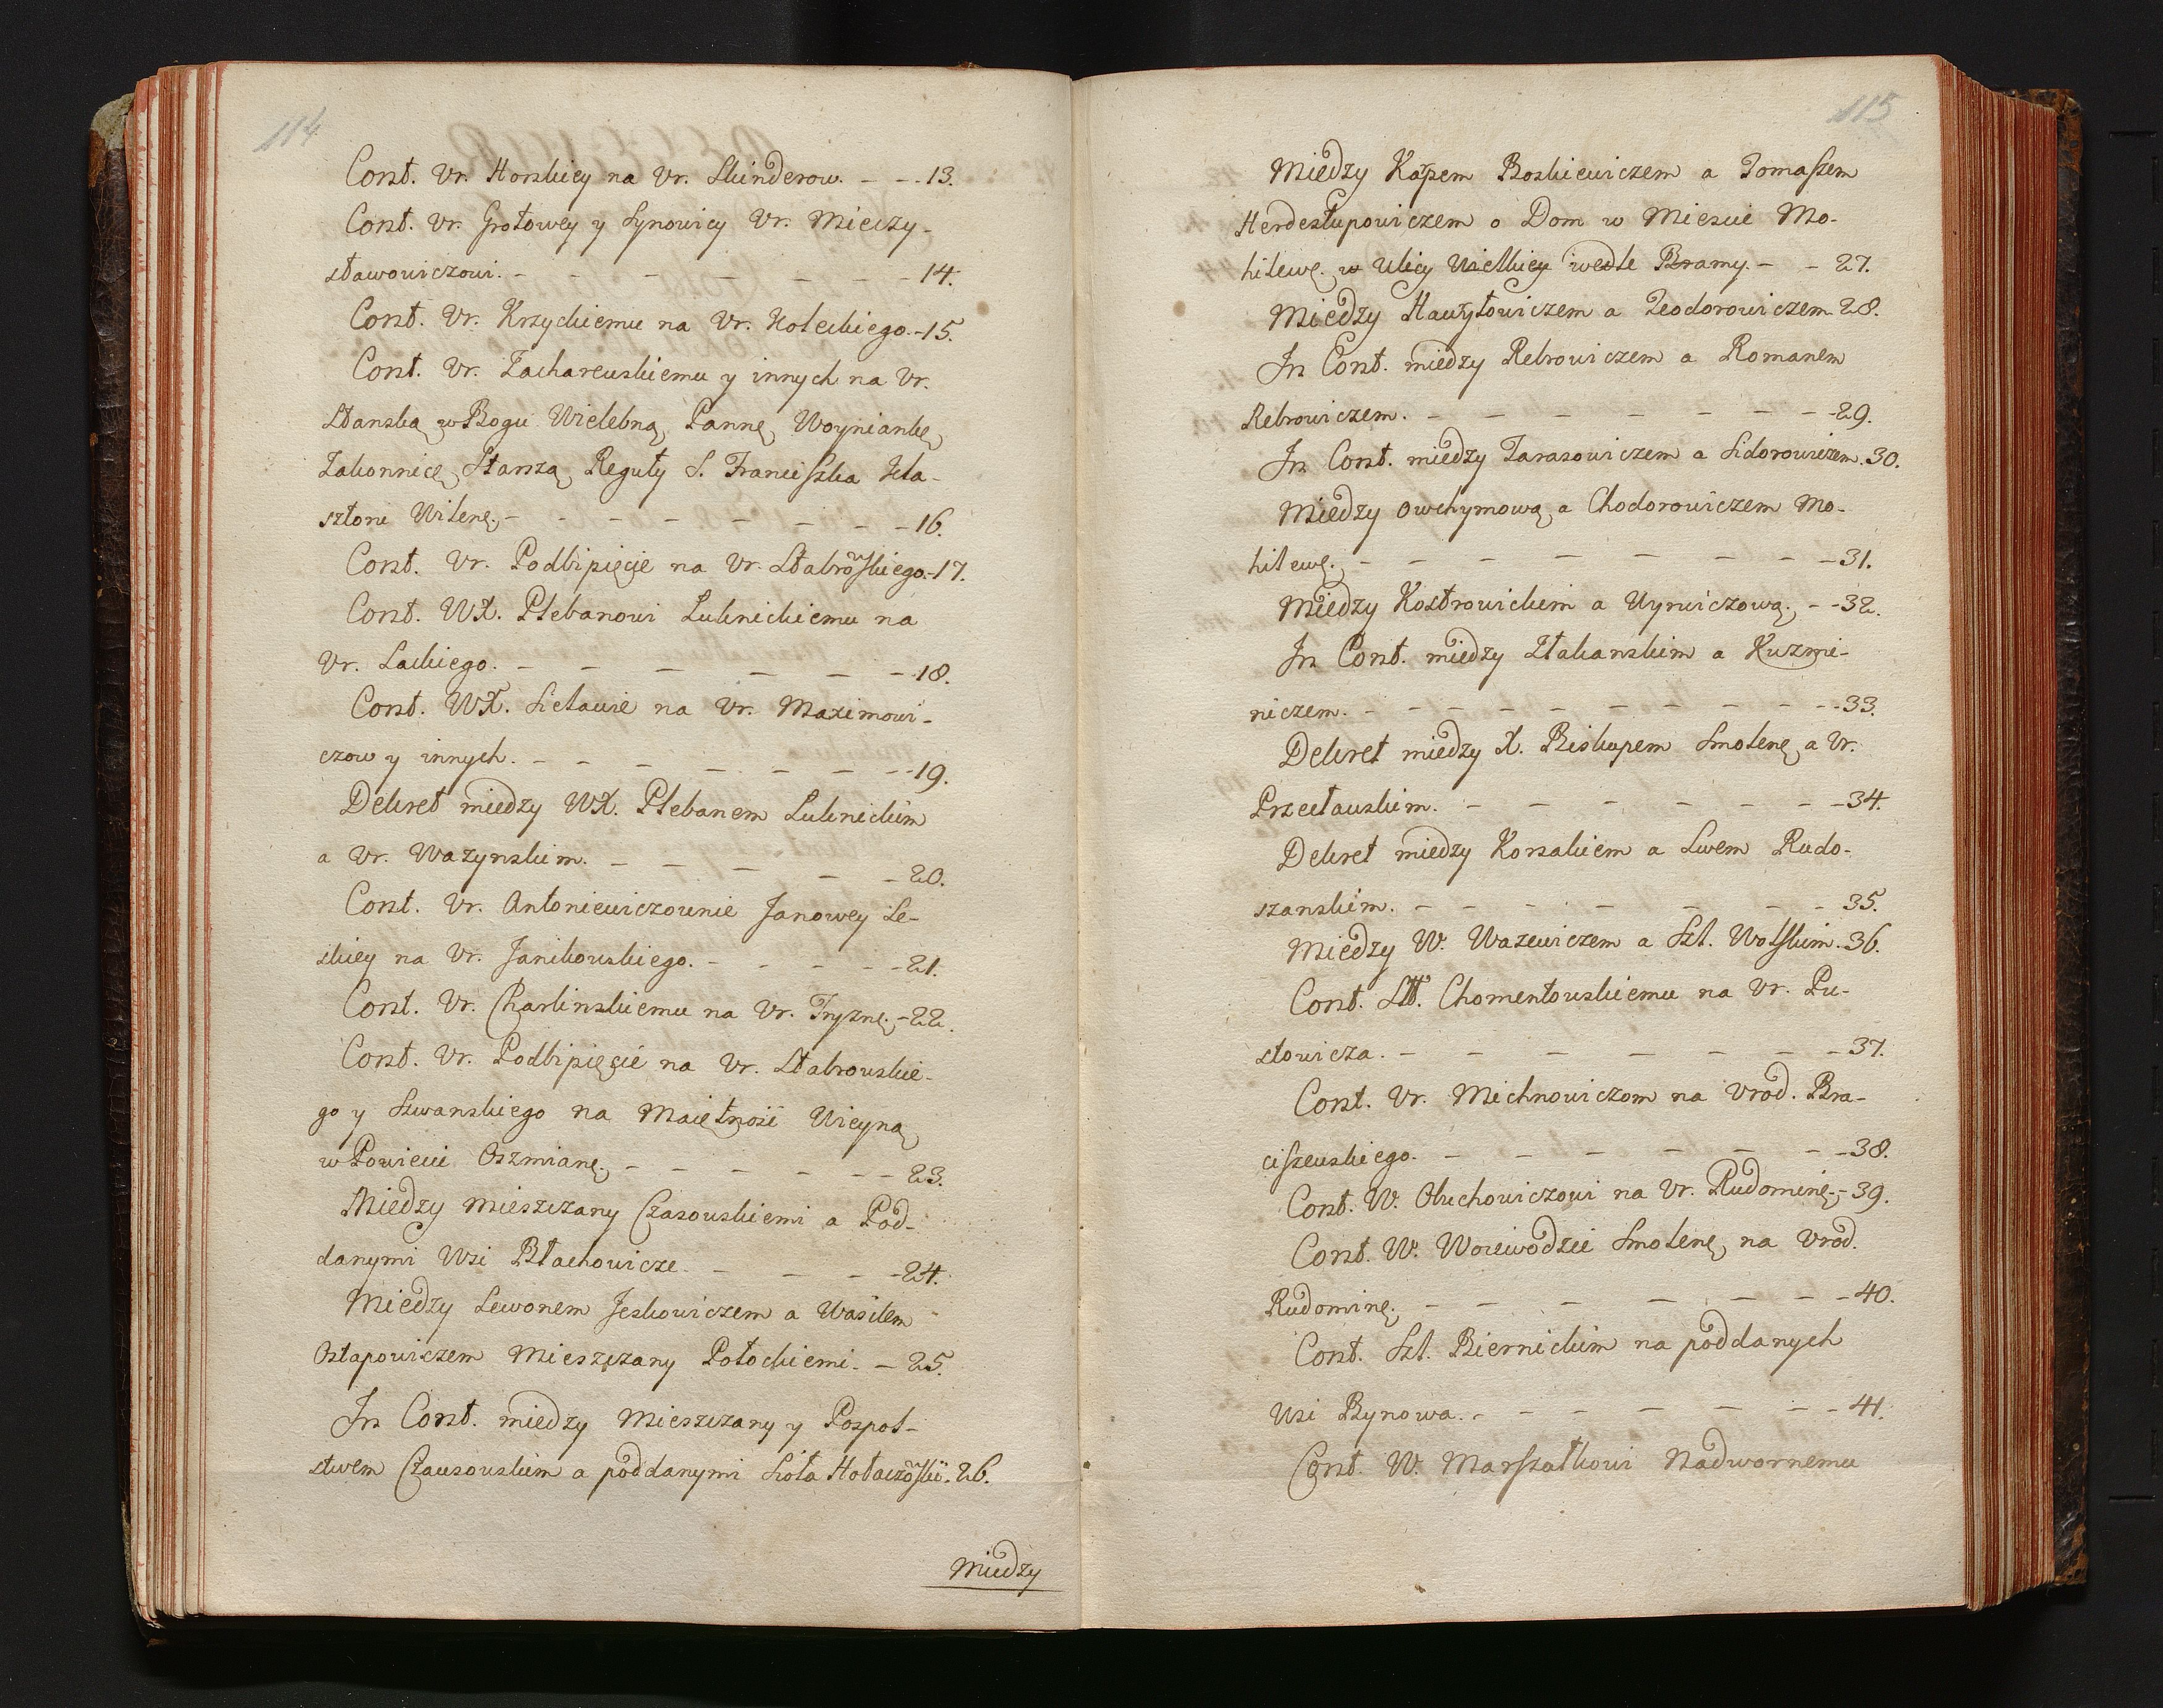 114
Const. Vr. Horskiey na Vr. Skinderow. - - - 13.
Const. Vr. Grotowey y Synowicy Vr. Mieczy-
sławowiczowi. - - - - - - - 14.
Const. Vr. Krzyckiemu na Vr. Koleckiego. - 15.
Const. Vr. Zacharewskiemu y innych na Vr.
Słanską w Bogu Wielebną Pannę Woyniankę
Zakonnicę Starszą Reguły S. Franciszka Kla-
sztoru Wilenę. - - - - - - - - 16.
Const. Vr. Podbipięcie na Vr. Stabroskiego. - 17.
Const. WX. Plebanowi Luknickiemu na
Vr. Lackiego. - - - - - - 18.
Const. WX. Sietawie na Vr. Maximowi-
czow y innych. - - - - - - - 19.
Dekret miedzy WX. Plebanem Luknickim
a Vr. Wazynskim. - - - - - 20.
Const. Vr. Antoniewiczownie Janowey Le-
skiey na Vr. Janikowskiego. - - - - - 21.
Const. Vr. Charlinskiemu na Vr. Tryznę. - 22.
Const. Vr. Podbipięcie na Vr. Stabrowskie-
go y Iwanskiego na Maiętność Wieyną
w Powiecie Oszmianę. - - - - - - 23.
Miedzy Mieszczany Czasouskiemi a Pod-
danymi Wsi Błachowicze. - - - - 24.
Miedzy Lewonem Jeskowiczem a Wasilem
Ostapowiczem Mieszczany Połockiemi. - 25.
In Const. miedzy Mieszczany y Pospol-
stwem Czausouskim a poddanymi Sioła Hołaczoskie. 26.
Miedzy
115
Miedzy Karpem Boskiewiczem a Tomaszem
Herdestupowiczem o Dom w Miescie Mo-
hilewę. w Ulicy Wielkiey wedle Bramy. - - 27.
Miedzy Hawryłowiczem a Teodorowiczem. 28.
In Const. miedzy Rebrowiczem a Romanem
Rebrowiczem. - - - - - - - 29.
In Const. miedzy Tarasowiczem a Sidorowiczem. 30.
Miedzy Owchymową a Chodorowiczem Mo-
hilewę. - - - - - - - - 31.
Miedzy Kostrowickim a Uyrwiczową. - - 32.
In Const. miedzy Stakanskim a Kuzmi-
niczem. - - - - - - - - - - 33.
Dekret miedzy X. Biskupem Smolenę a Vr.
Przecławskim. - - - - - - - 34.
Dekret miedzy Korsakiem a Lwem Rudo-
szanskim. - - - - - - - 35.
Miedzy W. Wazewiczem a Szl. Wolskim. 36.
Const. Chomentowskiemu na Vr. Pu-
słowicza. - - - - - - - 37.
Const. Vr. Michnowiczom na Vrod. Bra-
ciszewskiego. - - - - - - - 38.
Const. W. Obuchowiczowi na Vr. Rudominę. - 39.
Const. W. Woiewodzie Smolenę na Vrod.
Rudominę. - - - - - - - 40.
Const. Szl. Biernickim na poddanych
Wsi Bynowa. - - - - - - - 41.
Const. W. Marszałkowi Nadwornemu